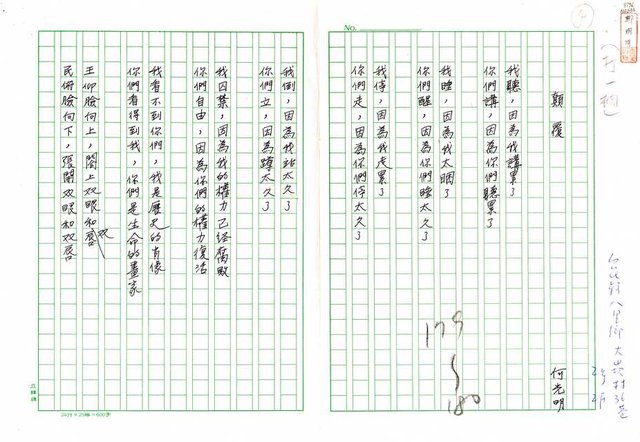 4
(打一稿)
No.
顛覆
何光明
我聽，因為我講累了
你們講，因為你們聽累了
我睡，因為我太睏了
你們醒，因為你們睡太久了
我停，因為我走累了
你們走，因為你們停太久了
179
180
台北縣八里鄉大崁村36巷
2號
2F
我倒，因為我站太久了
你們立，因為蹲太久了
我囚禁，因為我的權力已經腐敗
你們自由，因為你們的權力復活
我看不到你們，我是歷史的肖像
你們看得到我，你們是生命的畫家
王仰臉向上，閤上双眼和双唇
民俯臉向下，張開双眼和双唇
24行×25格=600字